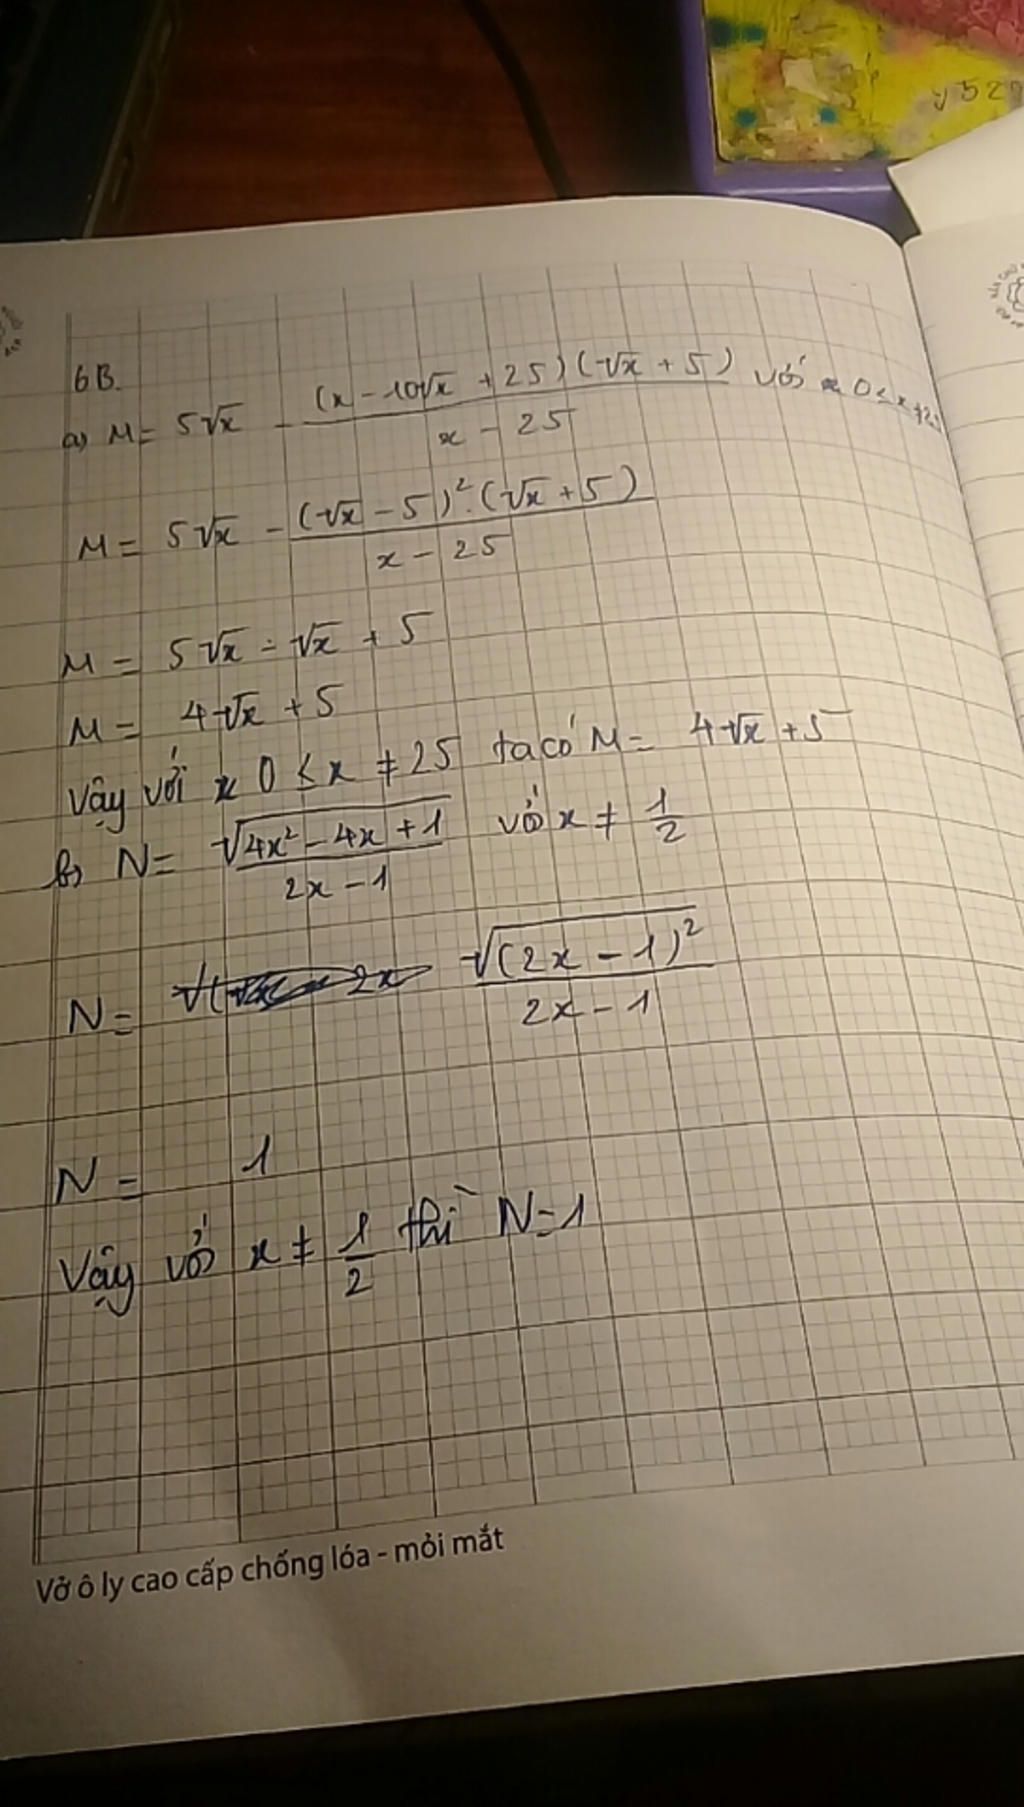 y 529
6B.
a) M = 5√x - (x - 10√x + 25)(√x + 5) / x - 25 với 0 ≤ x ≠ 25
M = 5√x - (√x - 5)².(√x + 5) / x - 25
M = 5√x - √x + 5
M = 4√x + 5
Vậy với x 0 ≤ x ≠ 25 ta có M = 4√x + 5
b) N = √4x² - 4x + 1 / 2x - 1 với x ≠ 1/2
N = √(2x - 1)² / 2x - 1
N = 1
Vậy với x ≠ 1/2 thì N = 1
Vở ô ly cao cấp chống lóa - mỏi mắt